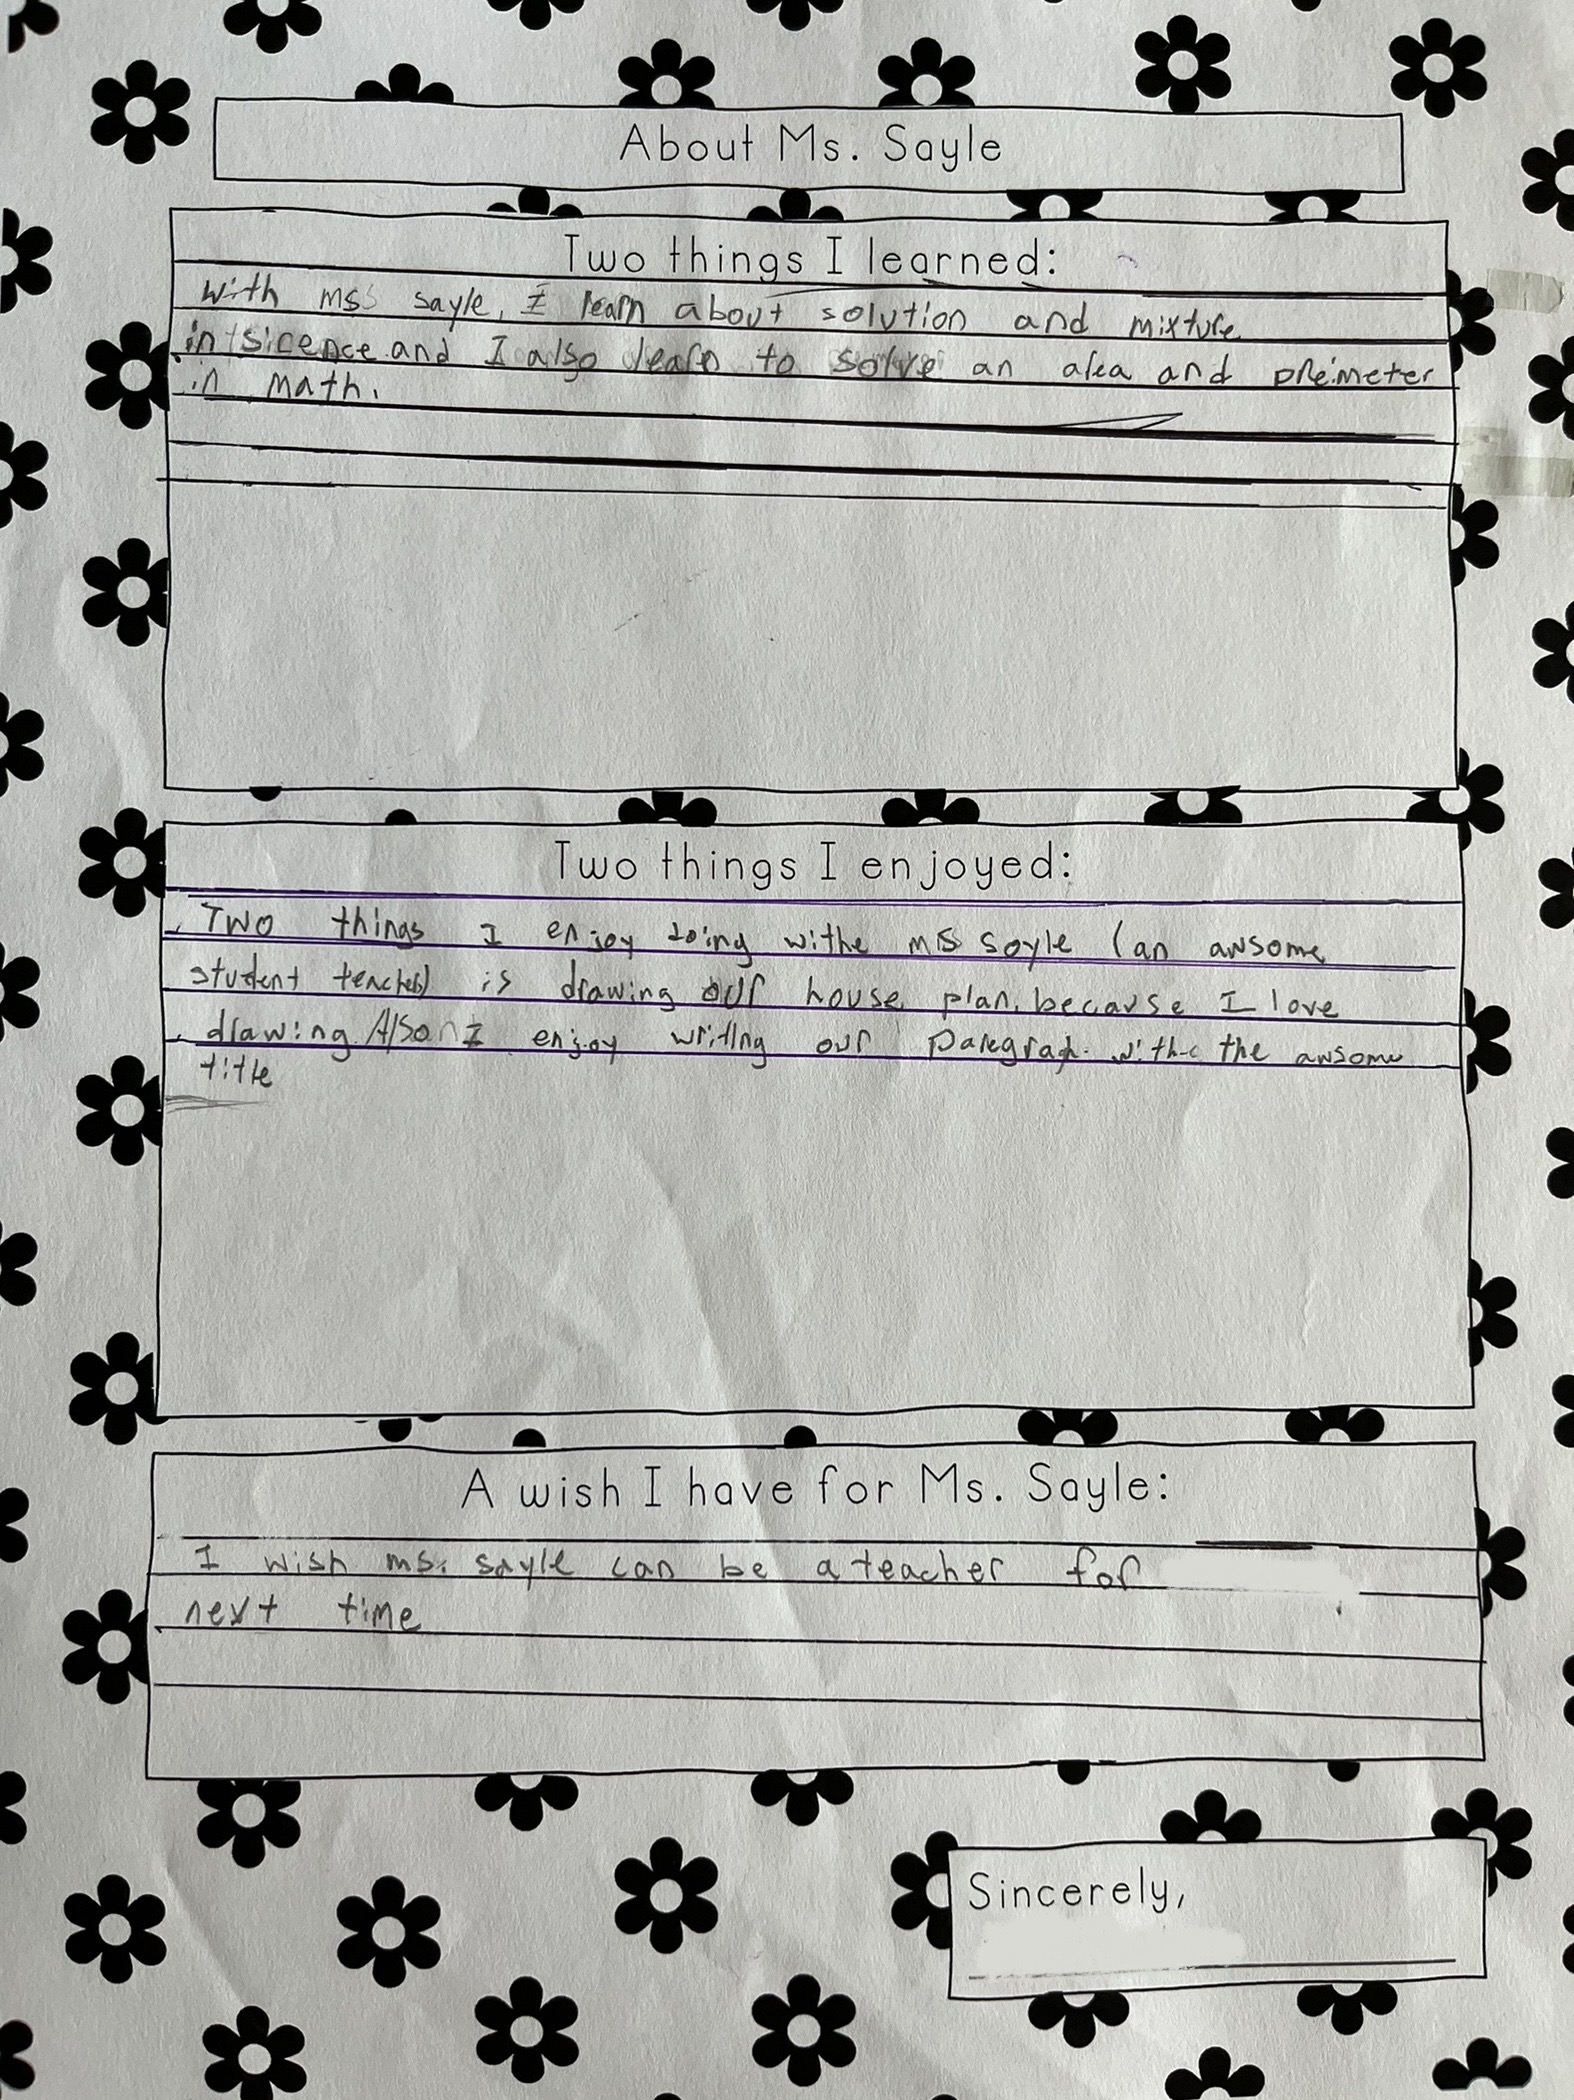 About Ms. Sayle
Two things I learned:
with mss sayle, I learn about solution and mixture
in sicence and I also learn to solve an area and preimeter
in math.
Two things I enjoyed:
Two things I enjoy doing withe ms sayle (an awsome
student teacher) is drawing our house plan, because I love
drawing. Also I enjoy writing our Paregraph withe the awsome
title
A wish I have for Ms. Sayle:
I wish ms. sayle can be a teacher for
next time
Sincerely,